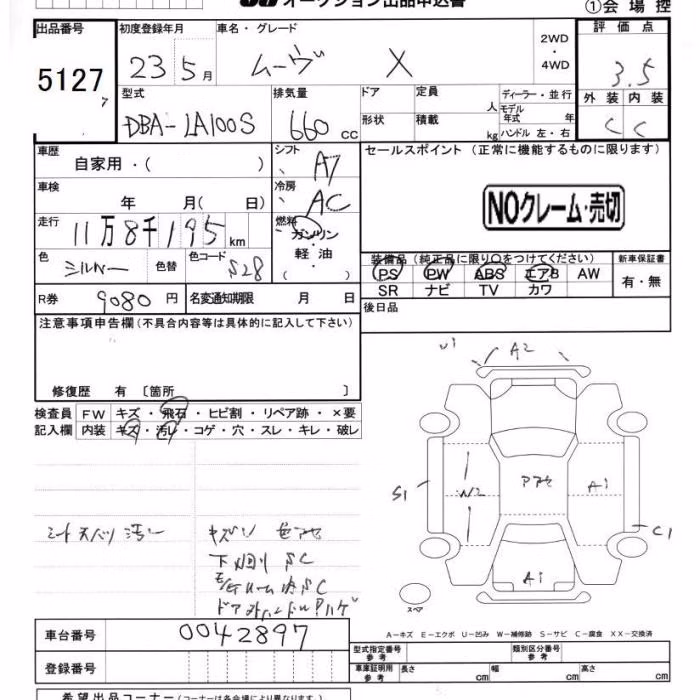 オークション出品申込書
①会場控
出品番号 初度登録年月 車名・グレード 2WD・4WD 評価点
5127 23 5月 ムーヴ X 3.5
7
型式 排気量 ドア 定員 人 ディーラー・並行 外装 内装
モデル年式 年
DBA-LA100S 660cc 形状 積載 kg ハンドル 左・右 C C
車歴 自家用・( ) シフト AT セールスポイント (正常に機能するものに限ります)
車検 年 月( 日) 冷房 AC
NOクレーム・売切
走行 11万8千195km 燃料 ガソリン・軽油・( )
色 シルバー 色替 色コード S28
装備品 (純正品に限り○をつけてください) 新車保証書
PS PW ABS エアB AW 有・無
SR ナビ TV カワ
R券 9080円 名変通知期限 月 日 後日品
注意事項申告欄(不具合内容等は具体的に記入して下さい)
修復歴 有 〔箇所 〕
検査員 FW キズ・飛石・ヒビ割・リペア跡・×要
記入欄 内装 キズ・汚レ・コゲ・穴・スレ・キレ・破レ
U1 A2
S1 W2 Pアセ A1
C1
A1
スペア
シートスベリ汚レ
キズソ 色アセ
下回リ SC
ドアオトハンドルPハゲ
A-キズ E-エクボ U-凹み W-補修跡 S-サビ C-腐食 XX-交換済
車台番号 0042897
型式指定番号 参考 類別区分番号 参考
登録番号
車庫証明用 参考 長さ cm 幅 cm 高さ cm
希望出品コーナー(コーナーは各会場により異なります)